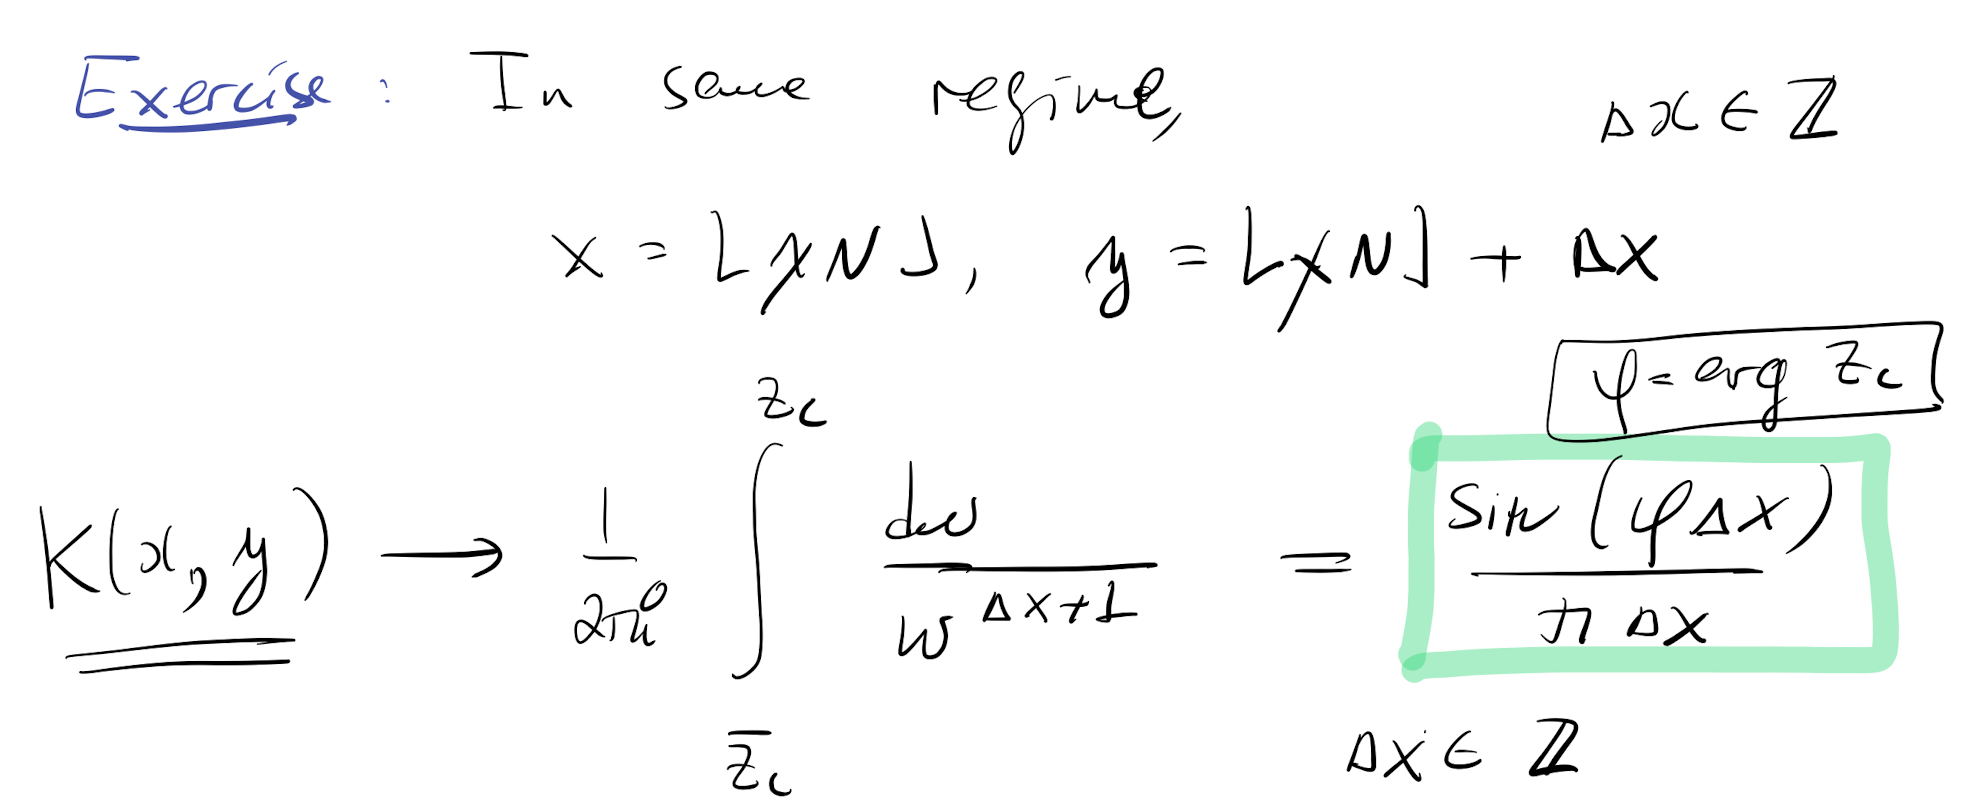 Exercise: In same regime, Δx ∈ ℤ
x = ⌊χN⌋, y = ⌊χN⌋ + Δx
φ = arg z_c
K(x, y) → \frac{1}{2πi} \int_{\bar{z}_c}^{z_c} \frac{dw}{w^{Δx+1}} = \frac{Sin(φΔx)}{π Δx}
Δx ∈ ℤ